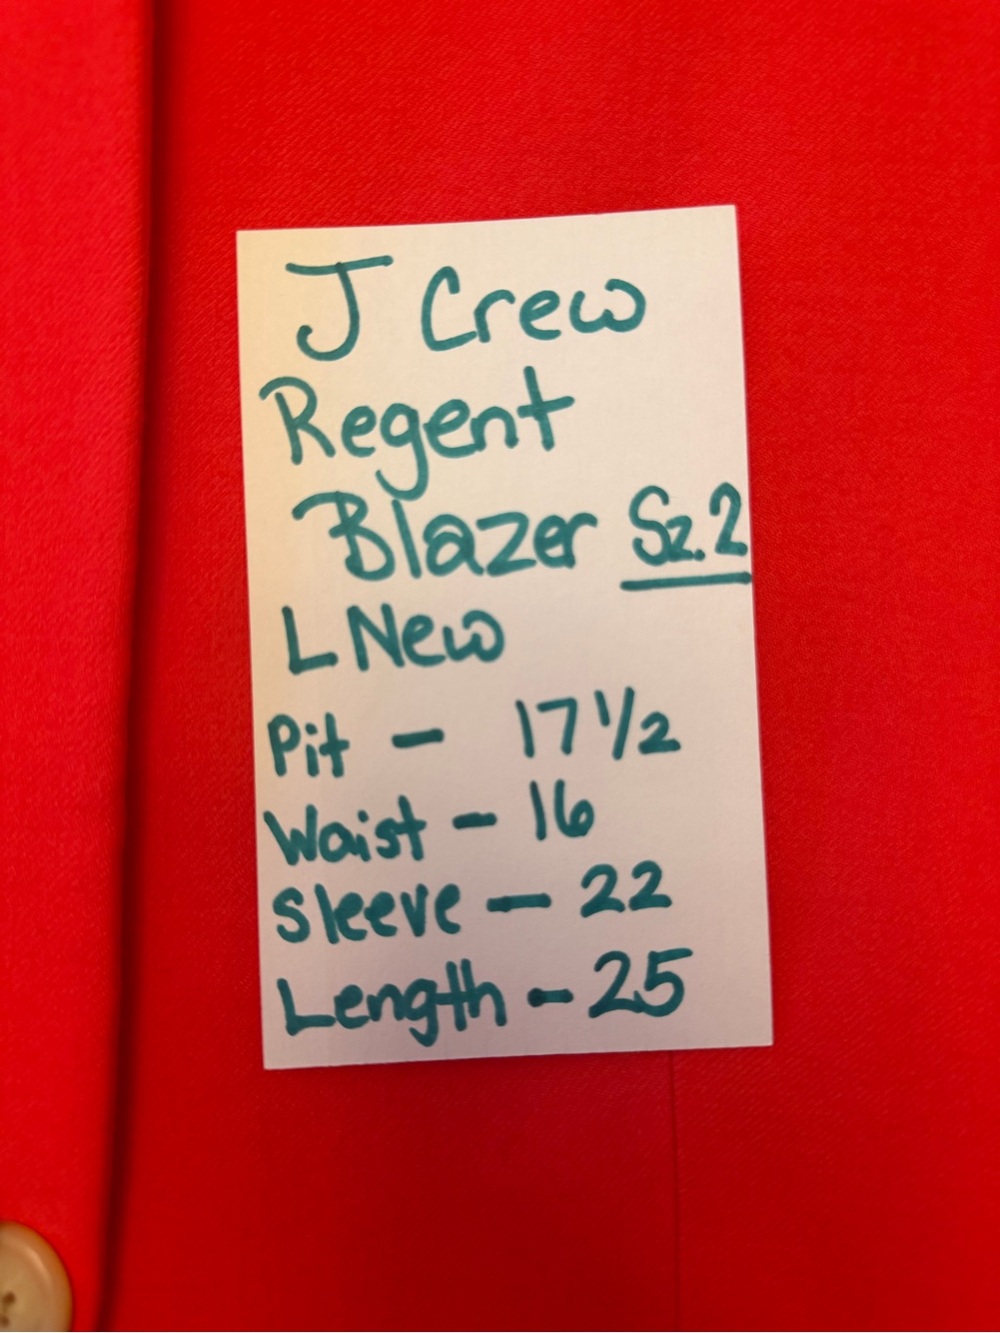 J Crew
Regent
Blazer Sz.2
L New
Pit - 17 1/2
Waist - 16
Sleeve - 22
Length - 25